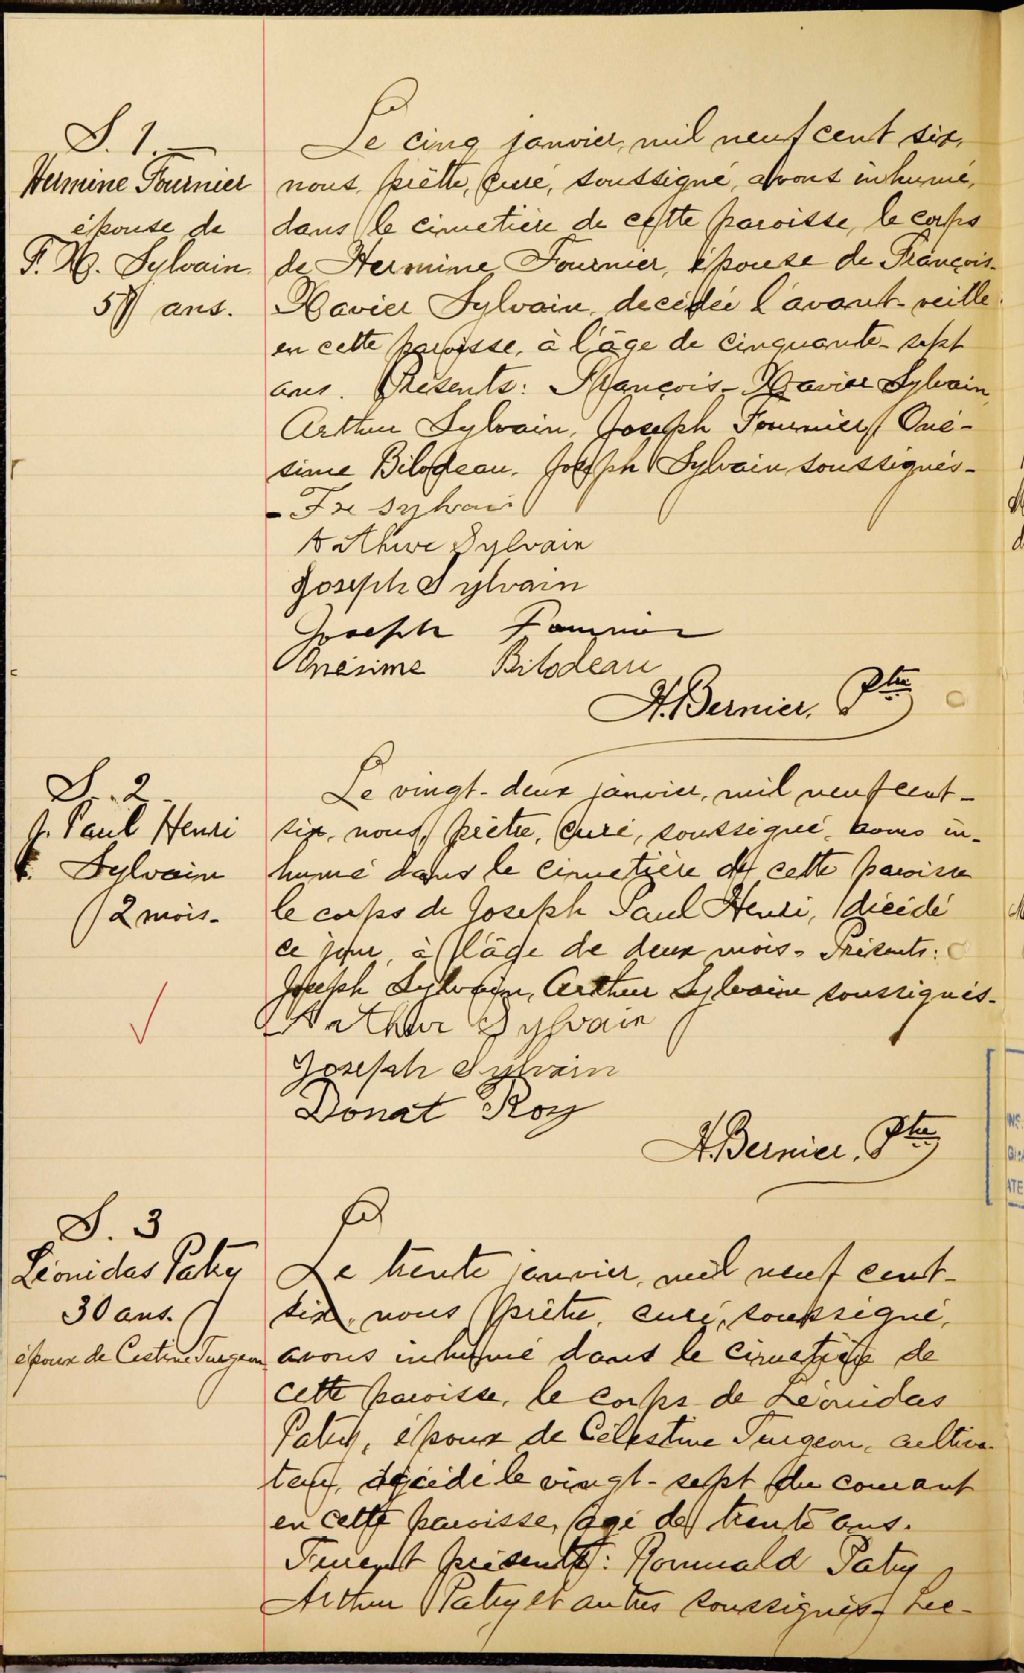 S. 1.
Hermine Fournier
épouse de
F. X. Sylvain
57 ans.
Le cinq janvier, mil neuf cent six,
nous, prêtre, curé, soussigné, avons inhumé,
dans le cimetière de cette paroisse, le corps
de Hermine Fournier, épouse de François-
Xavier Sylvain, decédée l'avant-veille
en cette paroisse, à l'âge de cinquante-sept
ans. Présents: François-Xavier Sylvain,
Arthur Sylvain, Joseph Fournier, Oné-
sime Bilodeau, Joseph Sylvain soussignés-
- Fx Sylvain
Arthur Sylvain
Joseph Sylvain
Joseph Fournier
Onésime Bilodeau
H. Bernier, Ptre
S. 2
J. Paul Henri
Sylvain
2 mois-
Le vingt-deux janvier, mil neuf cent-
six, nous, prêtre, curé, soussigné, avons in-
humé dans le cimetière de cette paroisse
le corps de Joseph Paul Henri, décédé
ce jour, à l'âge de deux mois- Présents:
Joseph Sylvain, Arthur Sylvain soussignés-
Arthur Sylvain
Joseph Sylvain
Donat Roy
H. Bernier, Ptre
S. 3
Léonidas Patry
30 ans.
époux de Cestine Turgeon
Le trente janvier, mil neuf cent-
six, nous prêtre, curé, soussigné,
avons inhumé dans le cimetière de
cette paroisse, le corps de Léonidas
Patry, époux de Célestine Turgeon, cultiva-
teur, décédé le vingt-sept du courant
en cette paroisse, âgé de trente ans.
Furent présents: Romuald Patry
Arthur Patry et autres soussignés- Lec-